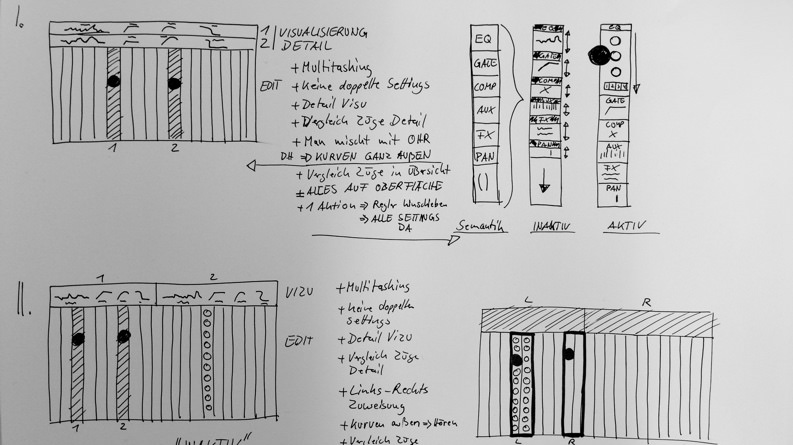 I.
1 VISUALISIERUNG
2 DETAIL
+ Multitasking
EDIT + Keine doppelte Settings
+ Detail Visu
+ Vergleich Züge Detail
+ Man mischt mit OHR
DH ⇒ KURVEN GANZ AUßEN
+ Vergleich Züge in Übersicht
± ALLES AUF OBERFLÄCHE
+ 1 Aktion ⇒ Regler
⇒ ALLE SETTINGS
DA
1 2
EQ
GATE
COMP
AUX
FX
PAN
( )
Semantik
EQ
GATE
COMP
AUX
FX
PAN
INAKTIV
EQ
GATE
COMP
AUX
FX
PAN
AKTIV
II.
1 2
VIZU
EDIT
1 2
"INAKTIV"
+ Multitasking
+ Keine doppelte
Settings
+ Detail Vizu
+ Vergleich Züge
Detail
+ Links-Rechts
Zuweisung
+ Kurven außen ⇒ Hören
+ Vergleich Züge
L R
L R